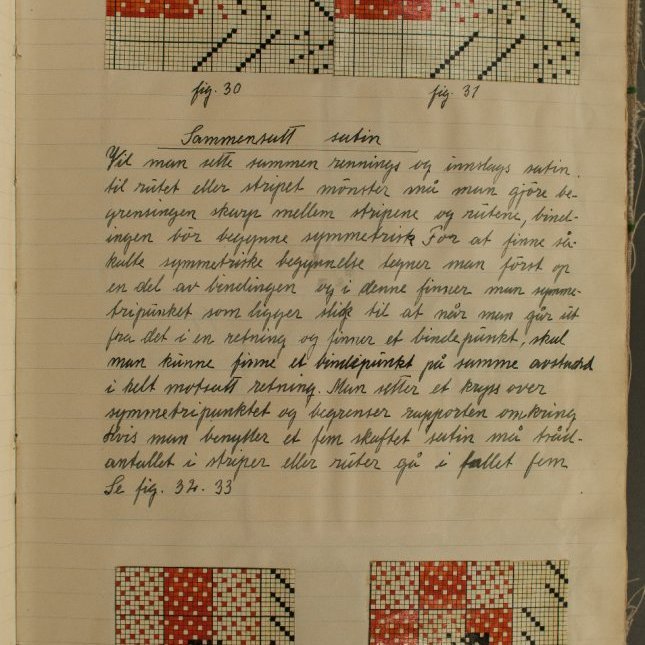 fig. 30
fig. 31
Sammensatt satin
Vil man sette sammen rennings og innslags satin
til rutet eller stripet mönster må man gjöre be-
grensingen skarp mellem stripene og rutene, bind-
ingen bör begynne symmetrisk For at finne så-
kalte symmetriske begynnelse tegner man först op
en del av bendingen og i denne finner man symme-
tripunket som ligger slik til at når man går ut
fra det i en retning og finner et bindepunkt, skal
man kunne finne et bindepunkt på samme avstand
i helt motsatt retning. Man setter et kryss over
symmetripunktet og begrenser rapporten omkring
Hvis man benytter et fem skaftet satin må tråd-
antallet i striper eller ruter gå i fallet fem
Se fig. 32. 33